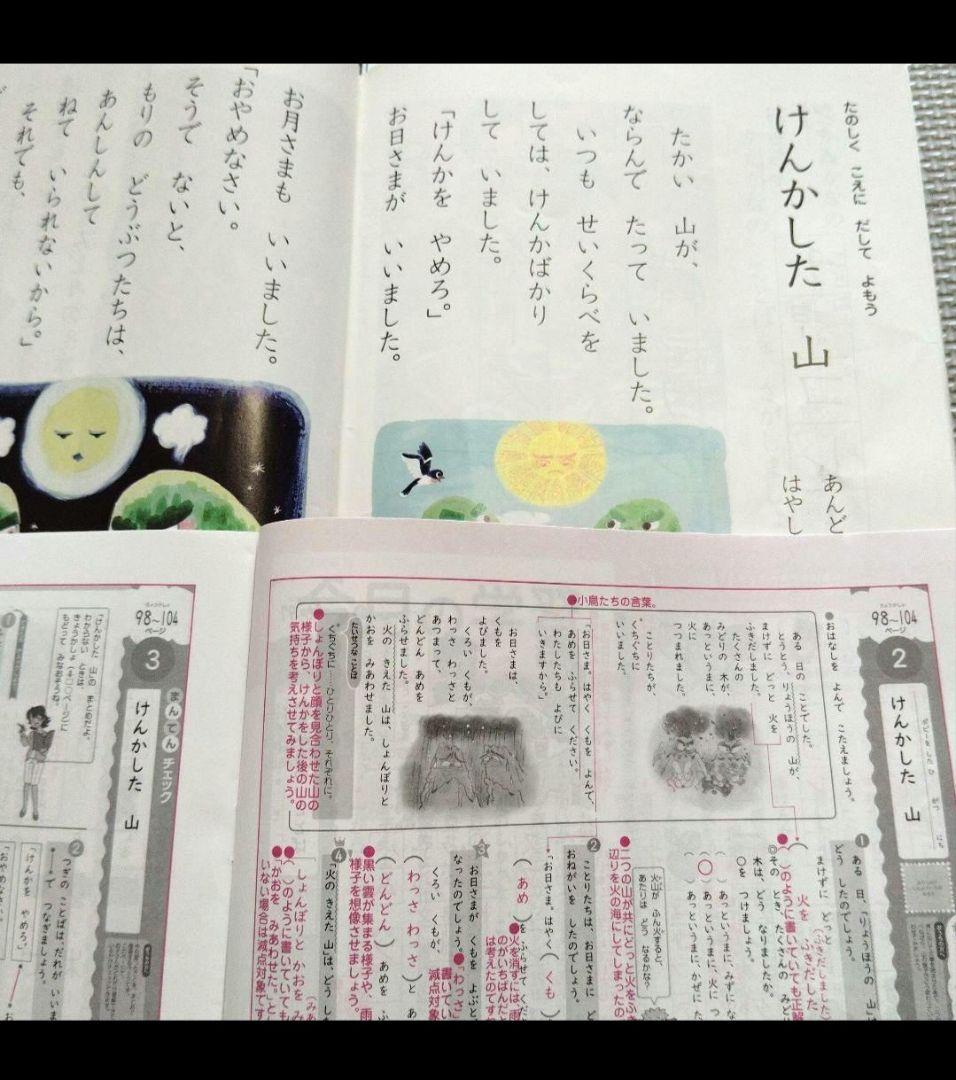 たのしく こえに だして よもう
けんかした 山
あんど
はやし
たかい 山が、
ならんで たって いました。
いつも せいくらべを
しては、けんかばかり
して いました。
「けんかを やめろ。」
お日さまが いいました。
お月さまも いいました。
「おやめなさい。
そうで ないと、
もりの どうぶつたちは、
あんしんして
ねて いられないから。」
それでも、
98〜104
ページ
2
けんかした 山
●おはなしを よんで こたえましょう。
ある 日の ことでした。
とうとう、りょうほうの 山が、
まけずに どっと 火を
ふきだしました。
たくさんの
みどりの 木が、
あっというまに、
火に
つつまれました。
ことりたちが、
くちぐちに
いいました。
●小鳥たちの言葉。
「お日さま。はやく くもを よんで、
あめを ふらせて ください。
わたしたちも よびに
いきますから。」
お日さまは、
くもを
よびました。
くろい くもが、
わっさ わっさと
あつまって、
どんどん あめを
ふらせました。
火の きえた 山は、しょんぼりと
かおを みあわせました。
たいせつな ことば
くちぐちに…ひとりひとり、それぞれに。
●しょんぼりと顔を見合わせた山の
様子から、けんかをした後の山の
気持ちを考えさせてみましょう。
1
ある 日、「りょうほうの 山」は
どう したのでしょう。
まけずに どっと
火を ふきだした
(ふきだしました)
●( )のように書いていても正解
◎その とき、たくさんの みど
木は、どう なりましたか。
○を つけましょう。
( )あっというまに、みずに な
(○)あっというまに、火に つ
( )あっというまに、かぜに た
火山が ふん火すると、
あたりは どう なるかな?
●二つの山が共にどっと火をふき
辺りを火の海にしてしまったの
2
ことりたちは、お日さまに ど
おねがいを したのでしょう。
「お日さま。はやく(くも
(あめ)を ふらせて くださ
●火を消すには、雨
のがいちばんだと
は考えたのです
3
お日さまが くもを よぶと
なったのでしょう。
くろい くもが、
(わっさ わっさ)と あ
(どんどん)あめを ふ
●わっさ
書いてい
減点対象
●黒い雲が集まる様子や、雨
様子を想像させましょう。
4
「火の きえた 山」は、どう した
しょんぼりと かおを み
●( )のように書いていても
●「かおを みあわせた。」と
いない場合は減点対象です
98〜104
ページ
3
まんてん チェック
けんかした 山
「けんかした 山」の まとめだよ。
わからない ときは、
もどって みなおそうね。
2
つぎの ことばは、だれが いいま
で つなぎましょう。
「けんかを やめろ。」
「おやめなさい。